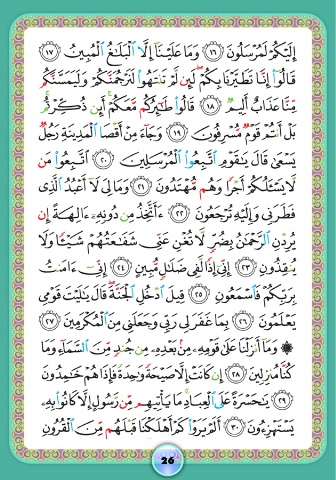 إِلَيْكُمْ لَمُرْسَلُونَ ١٦ وَمَا عَلَيْنَآ إِلَّا ٱلْبَلَٰغُ ٱلْمُبِينُ ١٧
قَالُوٓا۟ إِنَّا تَطَيَّرْنَا بِكُمْ ۖ لَئِن لَّمْ تَنتَهُوا۟ لَنَرْجُمَنَّكُمْ وَلَيَمَسَّنَّكُم
مِّنَّا عَذَابٌ أَلِيمٌ ١٨ قَالُوا۟ طَٰٓئِرُكُم مَّعَكُمْ ۚ أَئِن ذُكِّرْتُم ۚ
بَلْ أَنتُمْ قَوْمٌ مُّسْرِفُونَ ١٩ وَجَآءَ مِنْ أَقْصَا ٱلْمَدِينَةِ رَجُلٌ
يَسْعَىٰ قَالَ يَٰقَوْمِ ٱتَّبِعُوا۟ ٱلْمُرْسَلِينَ ٢٠ ٱتَّبِعُوا۟ مَن
لَّا يَسْـَٔلُكُمْ أَجْرًا وَهُم مُّهْتَدُونَ ٢١ وَمَا لِىَ لَآ أَعْبُدُ ٱلَّذِى
فَطَرَنِى وَإِلَيْهِ تُرْجَعُونَ ٢٢ ءَأَتَّخِذُ مِن دُونِهِۦٓ ءَالِهَةً إِن
يُرِدْنِ ٱلرَّحْمَٰنُ بِضُرٍّ لَّا تُغْنِ عَنِّى شَفَٰعَتُهُمْ شَيْـًٔا وَلَا
يُنقِذُونِ ٢٣ إِنِّىٓ إِذًا لَّفِى ضَلَٰلٍ مُّبِينٍ ٢٤ إِنِّىٓ ءَامَنتُ
بِرَبِّكُمْ فَٱسْمَعُونِ ٢٥ قِيلَ ٱدْخُلِ ٱلْجَنَّةَ ۖ قَالَ يَٰلَيْتَ قَوْمِى
يَعْلَمُونَ ٢٦ بِمَا غَفَرَ لِى رَبِّى وَجَعَلَنِى مِنَ ٱلْمُكْرَمِينَ ٢٧
۞ وَمَآ أَنزَلْنَا عَلَىٰ قَوْمِهِۦ مِنۢ بَعْدِهِۦ مِن جُندٍ مِّنَ ٱلسَّمَآءِ وَمَا
كُنَّا مُنزِلِينَ ٢٨ إِن كَانَتْ إِلَّا صَيْحَةً وَٰحِدَةً فَإِذَا هُمْ خَٰمِدُونَ
٢٩ يَٰحَسْرَةً عَلَى ٱلْعِبَادِ ۚ مَا يَأْتِيهِم مِّن رَّسُولٍ إِلَّا كَانُوا۟ بِهِۦ
يَسْتَهْزِءُونَ ٣٠ أَلَمْ يَرَوْا۟ كَمْ أَهْلَكْنَا قَبْلَهُم مِّنَ ٱلْقُرُونِ
26